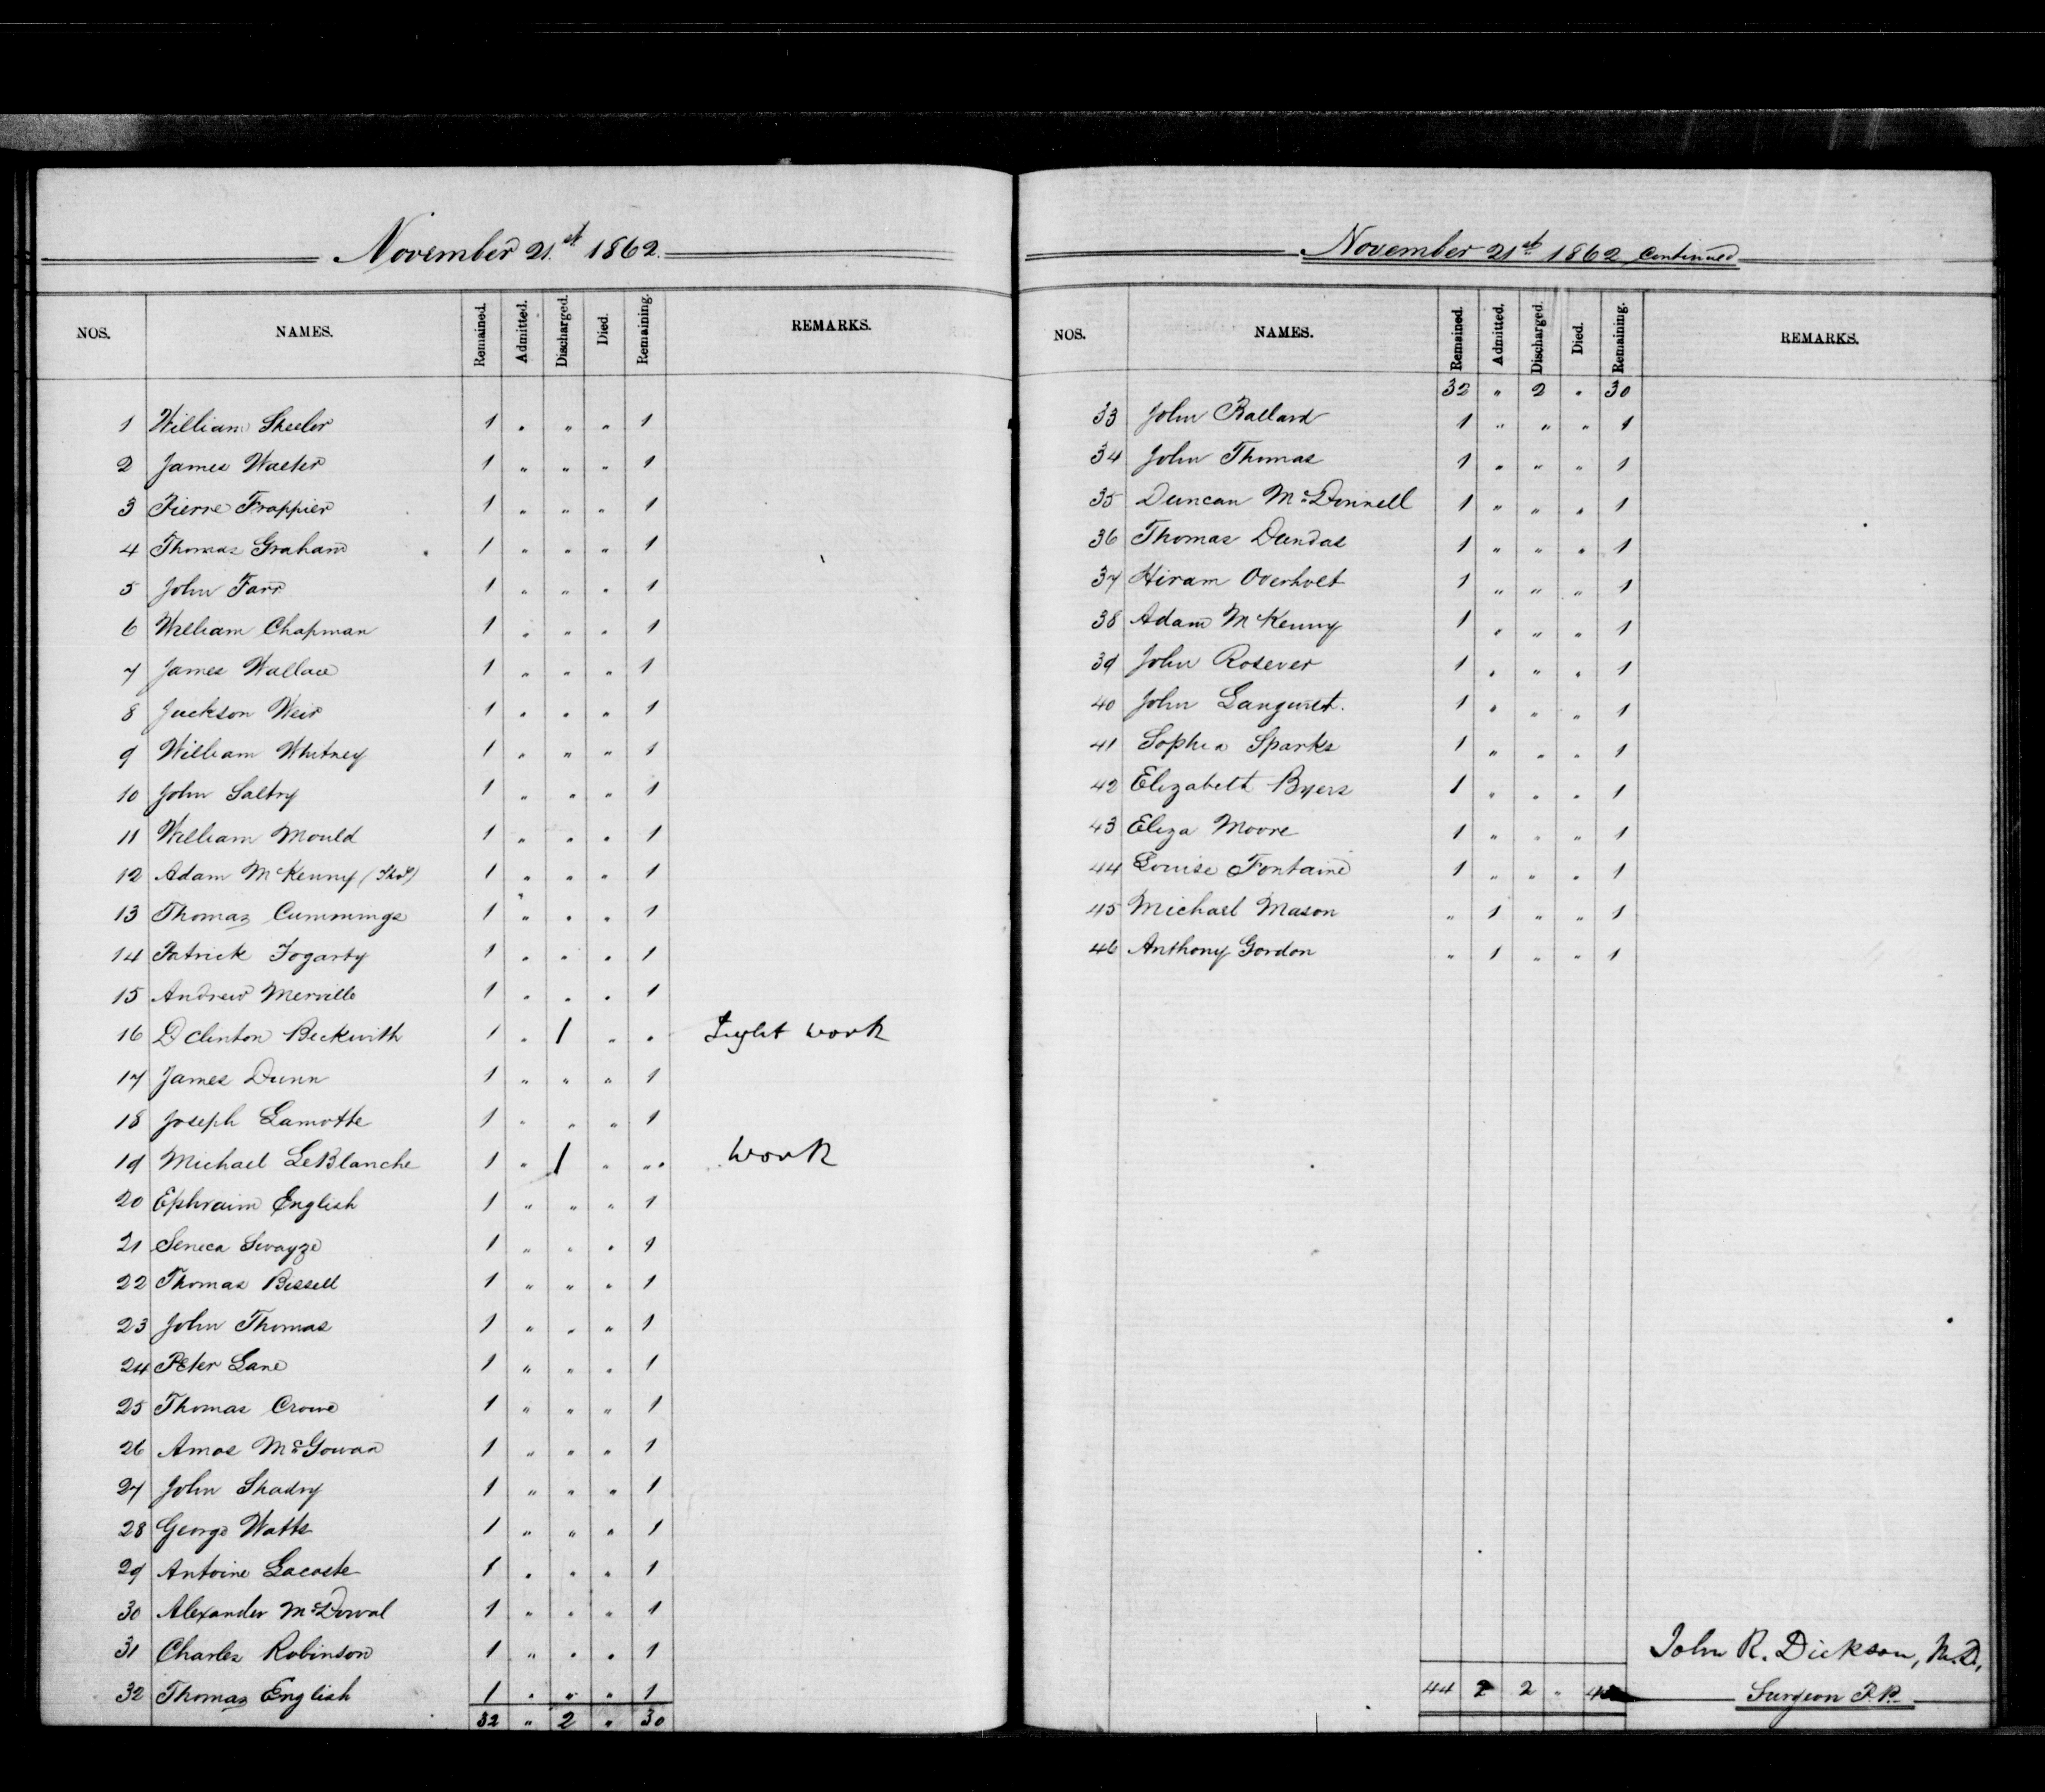 November 21st 1862.
NOS. NAMES. Remained. Admitted. Discharged. Died. Remaining. REMARKS.
1 William Sheeler 1 " " " 1
2 James Walter 1 " " " 1
3 Pierre Frappier 1 " " " 1
4 Thomas Graham 1 " " " 1
5 John Farr 1 " " " 1
6 William Chapman 1 " " " 1
7 James Wallace 1 " " " 1
8 Jackson Weir 1 " " " 1
9 William Whitney 1 " " " 1
10 John Saltry 1 " " " 1
11 William Mould 1 " " " 1
12 Adam McKenny 1 " " " 1
13 Thomas Cummings 1 " " " 1
14 Patrick Fogarty 1 " " " 1
15 Andrew Merville 1 " " " 1
16 D Clinton Beckwith 1 " 1 " " Light work
17 James Dunn 1 " " " 1
18 Joseph Lamotte 1 " " " 1
19 Michael LeBlanche 1 " 1 " " work
20 Ephraim English 1 " " " 1
21 Seneca Swayze 1 " " " 1
22 Thomas Bissell 1 " " " 1
23 John Thomas 1 " " " 1
24 Peter Lane 1 " " " 1
25 Thomas Crowe 1 " " " 1
26 Amos McGowan 1 " " " 1
27 John Shadry 1 " " " 1
28 George Watts 1 " " " 1
29 Antoine Lacoste 1 " " " 1
30 Alexander McDowal 1 " " " 1
31 Charles Robinson 1 " " " 1
32 Thomas English 1 " " " 1
32 " 2 " 30
November 21st 1862 Continued
NOS. NAMES. Remained. Admitted. Discharged. Died. Remaining. REMARKS.
32 " 2 " 30
33 John Ballard 1 " " " 1
34 John Thomas 1 " " " 1
35 Duncan McDonnell 1 " " " 1
36 Thomas Dundas 1 " " " 1
37 Hiram Overholt 1 " " " 1
38 Adam McKenny 1 " " " 1
39 John Rosever 1 " " " 1
40 John 1 " " " 1
41 Sophia Sparks 1 " " " 1
42 Elizabeth Byers 1 " " " 1
43 Eliza Moore 1 " " " 1
44 Louise Fontaine 1 " " " 1
45 Michael Mason " 1 " " 1
46 Anthony Gordon " 1 " " 1
John R. Dickson, M.D.,
44 2 2 " Surgeon P.P.